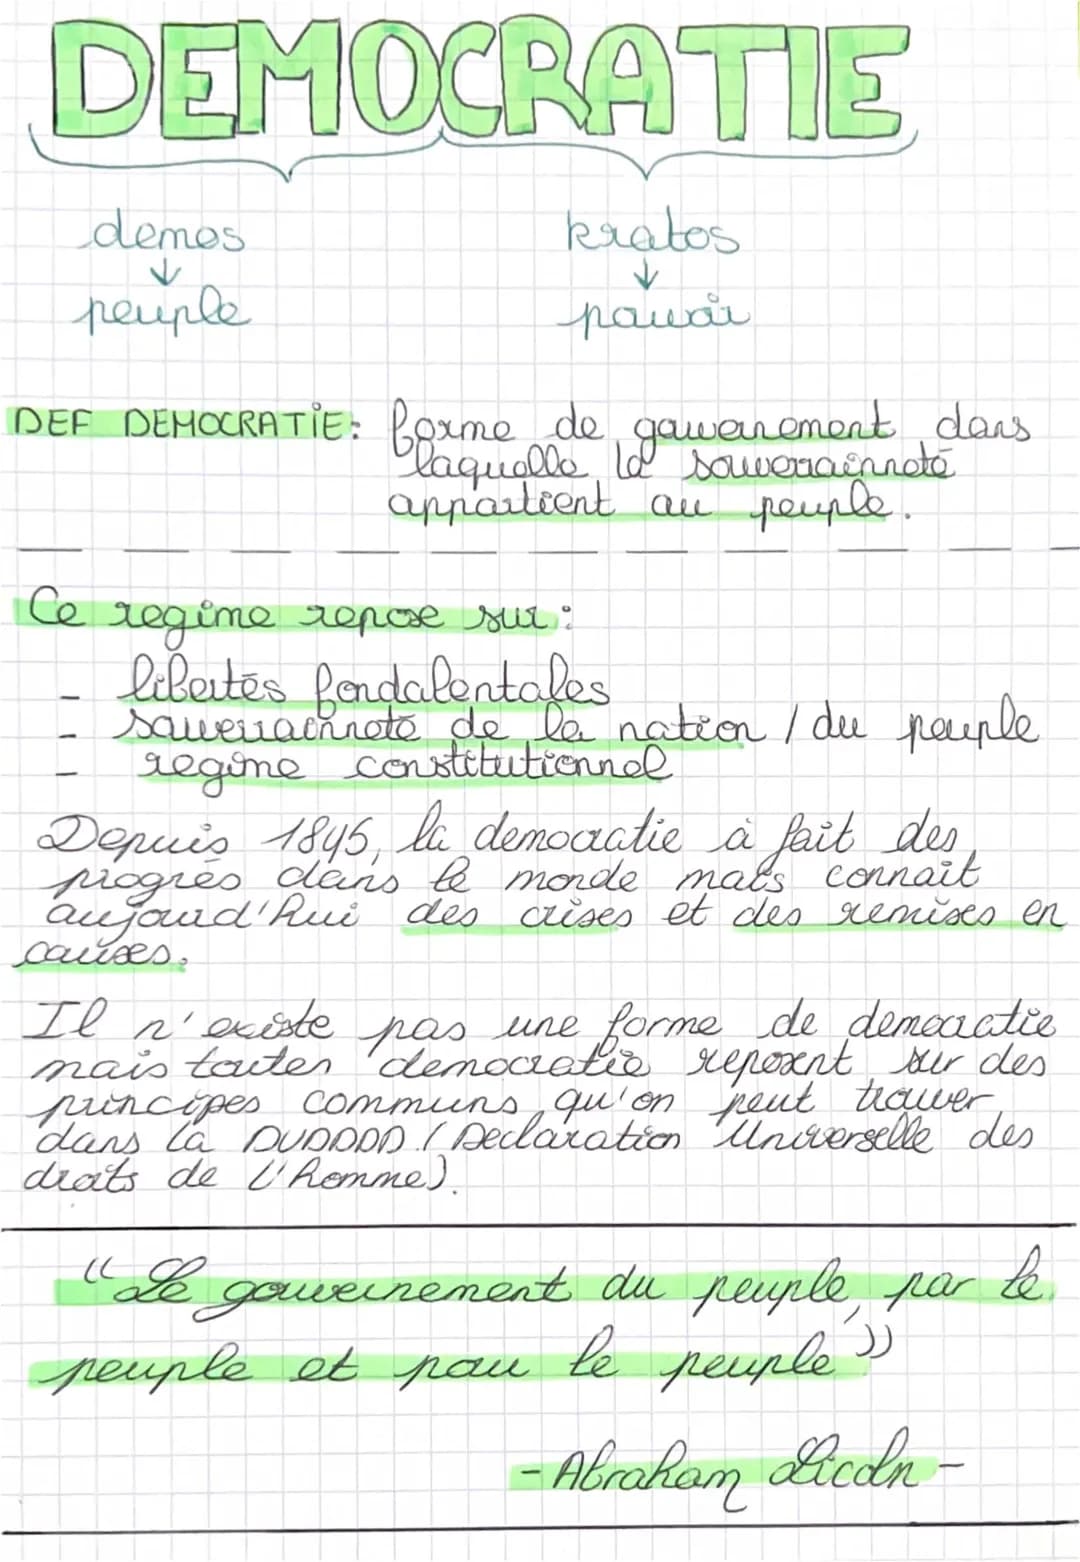 DEMOCRATIE
demos kratos
↓ ↓
peuple pouvoir
DEF DEMOCRATIE: forme de gouvernement dans
laquelle la souverrainneté
appartient au peuple.
Ce regime repose sur :
- libertés fondalentales
- souverrainneté de la nation / du peuple
- regime constitutionnel
Depuis 1845, la democratie à fait des
progrès dans le monde mais connaît
aujourd'hui des crises et des remises en
causes.
Il n'existe pas une forme de democractie
mais toutes democratie reposent sur des
principes communs qu'on peut trouver
dans la DUDDDD (Declaration Universelle des
droits de l'homme).
"Le gouvernement du peuple, par le
peuple et pour le peuple"
- Abraham Licoln -